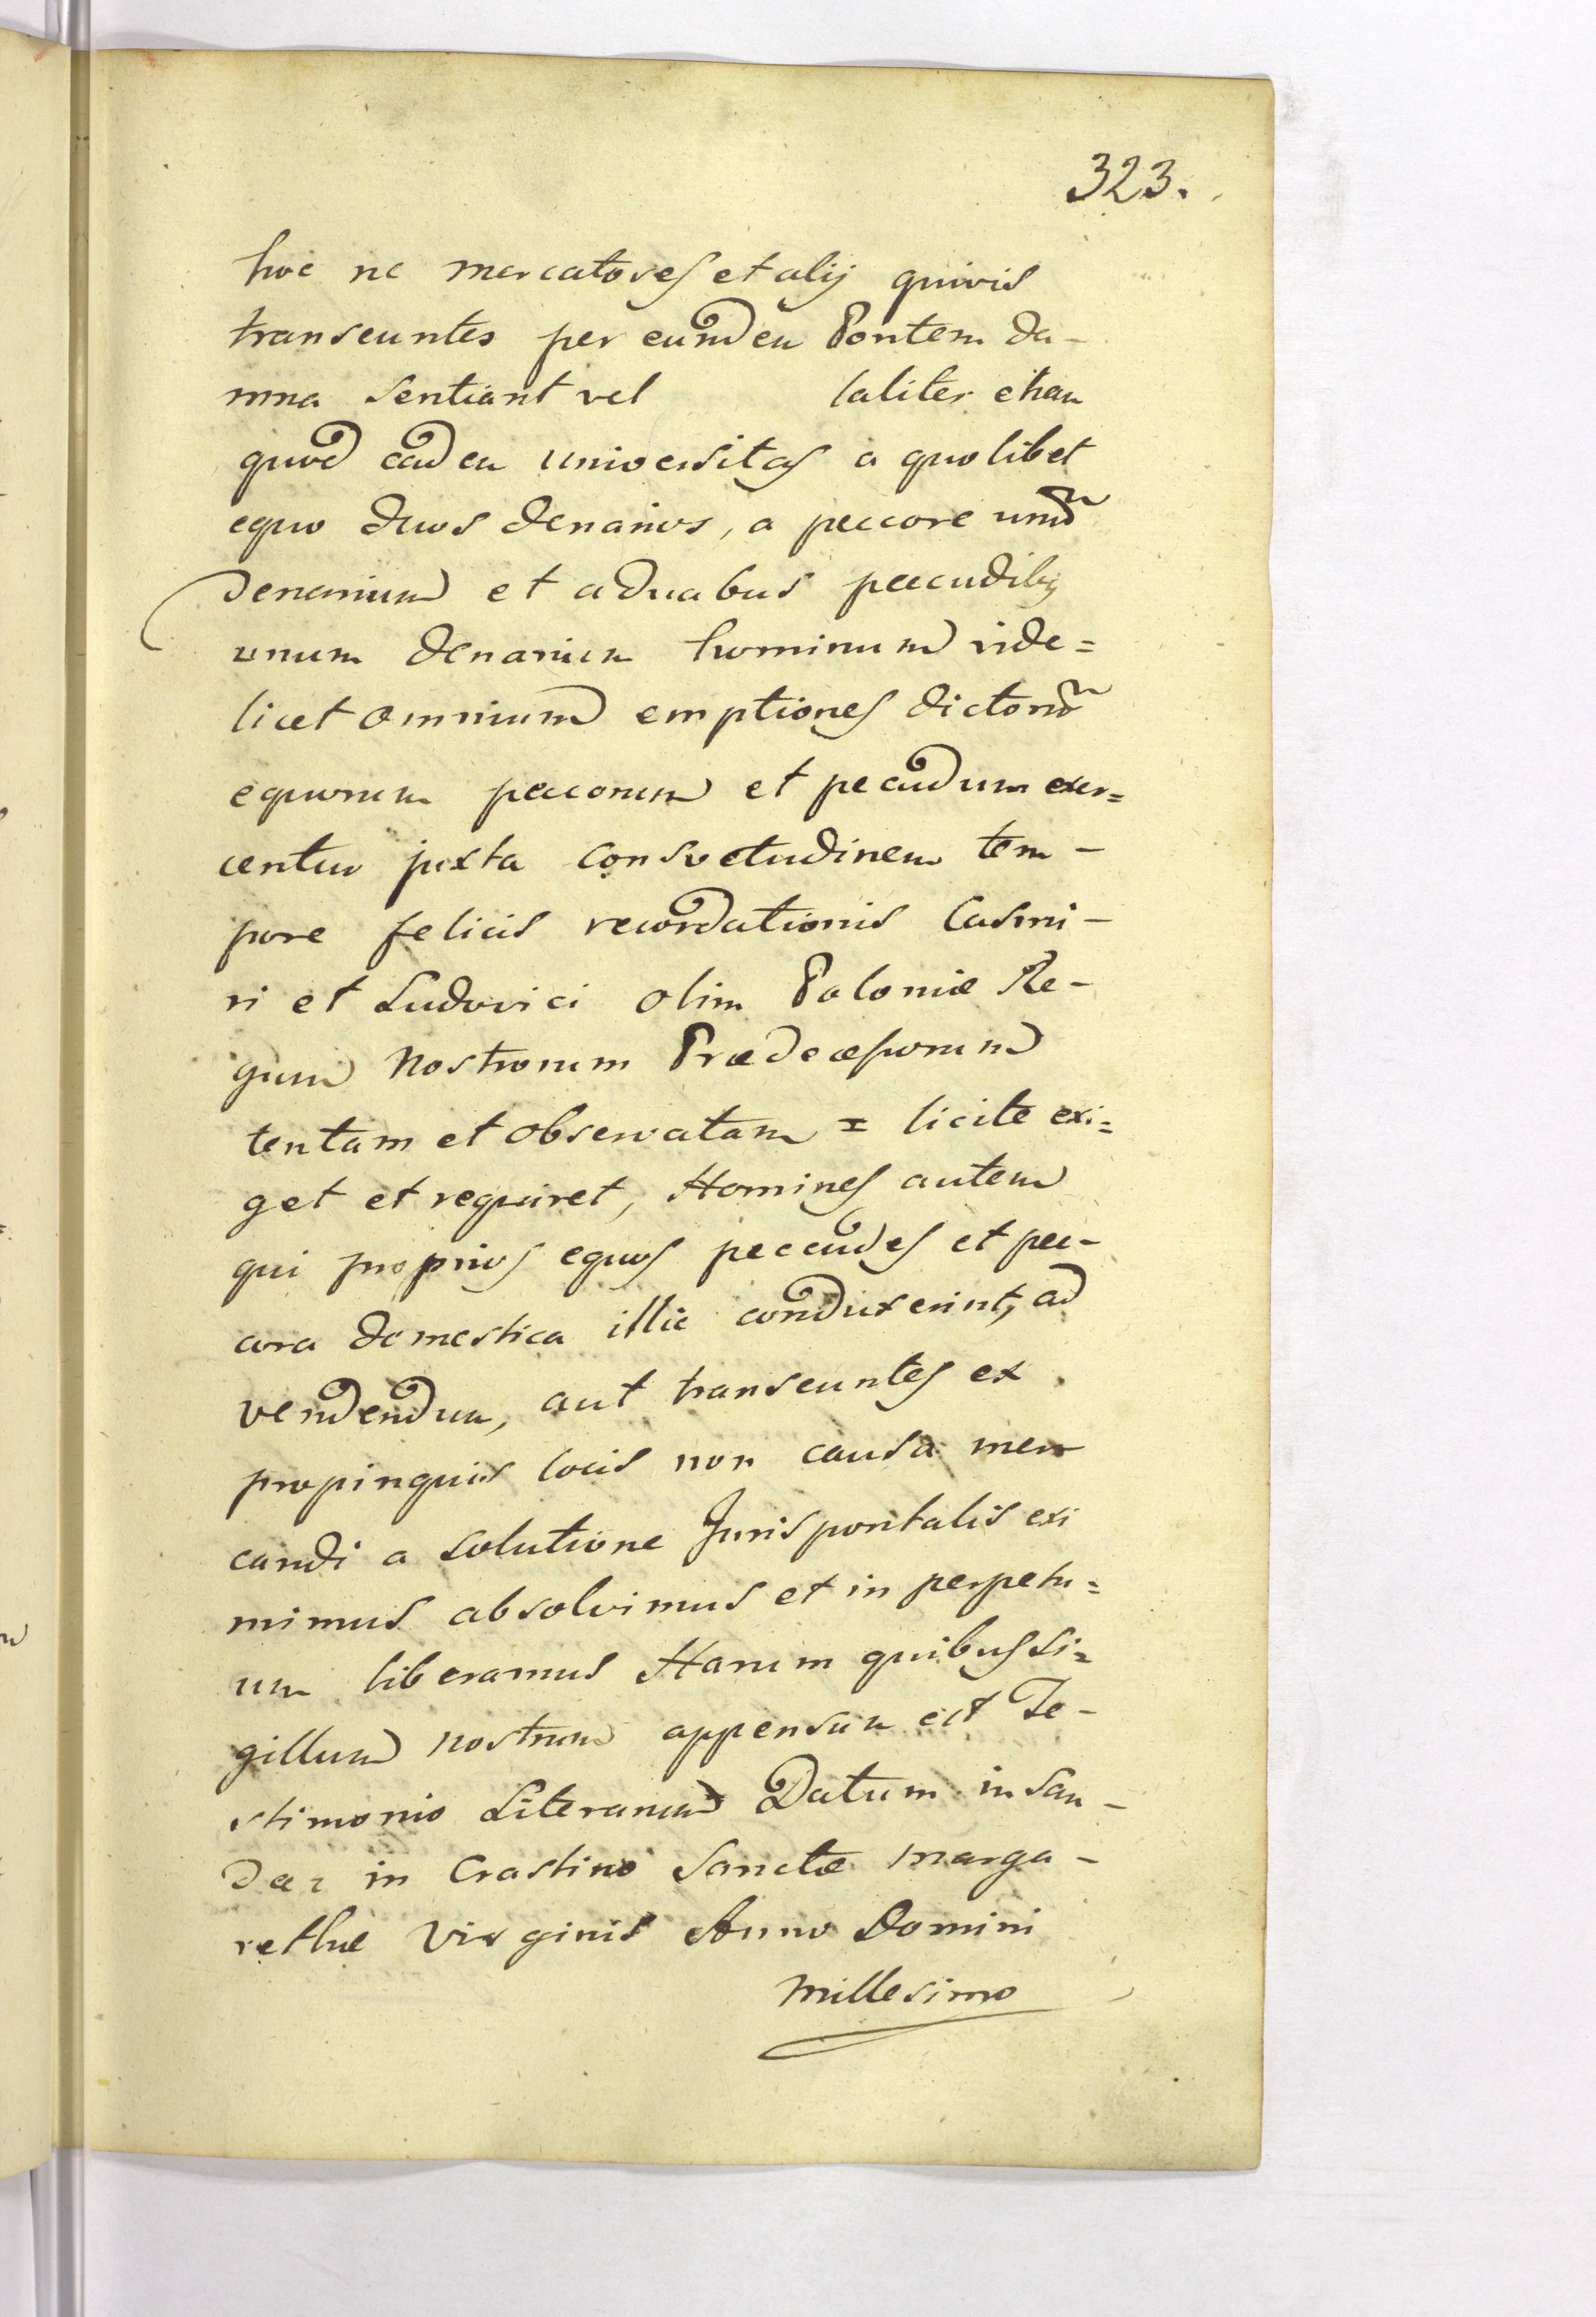 323.
hoc ne mercatores et alij quivis
transeuntes per eundem Pontem da-
mna sentiant vel taliter etiam
quod eadem universitas a quolibet
equo duos denarios, a peccore unum
denarium et a duabus peccudibus
unum denarium hominum vide=
licet omnium emptiones dictorum
equorum peccorum et pecudum exer=
centur juxta consvetudinem tem-
pore felicis recordationis Casmi-
ri et Ludovici olim Poloniæ Re-
gum Nostrorum Prædecessorum
tentam et observatam = licite exi=
get et requiret, Homines autem
qui proprios equos peccudes et pec-
cora domestica illic conduxerint, ad
vendendum, aut transeuntes ex
propinquis locis non causa mer
candi a solutione Juris pontalis exi
mimus absolvimus et in perpetu=
um liberamus Harum quibus Si=
gillum nostrum appensum est Te-
stimonio Literarum Datum in San-
decz in Crastino Sanctæ Marga-
rethæ Virginis Anno Domini
Millesimo